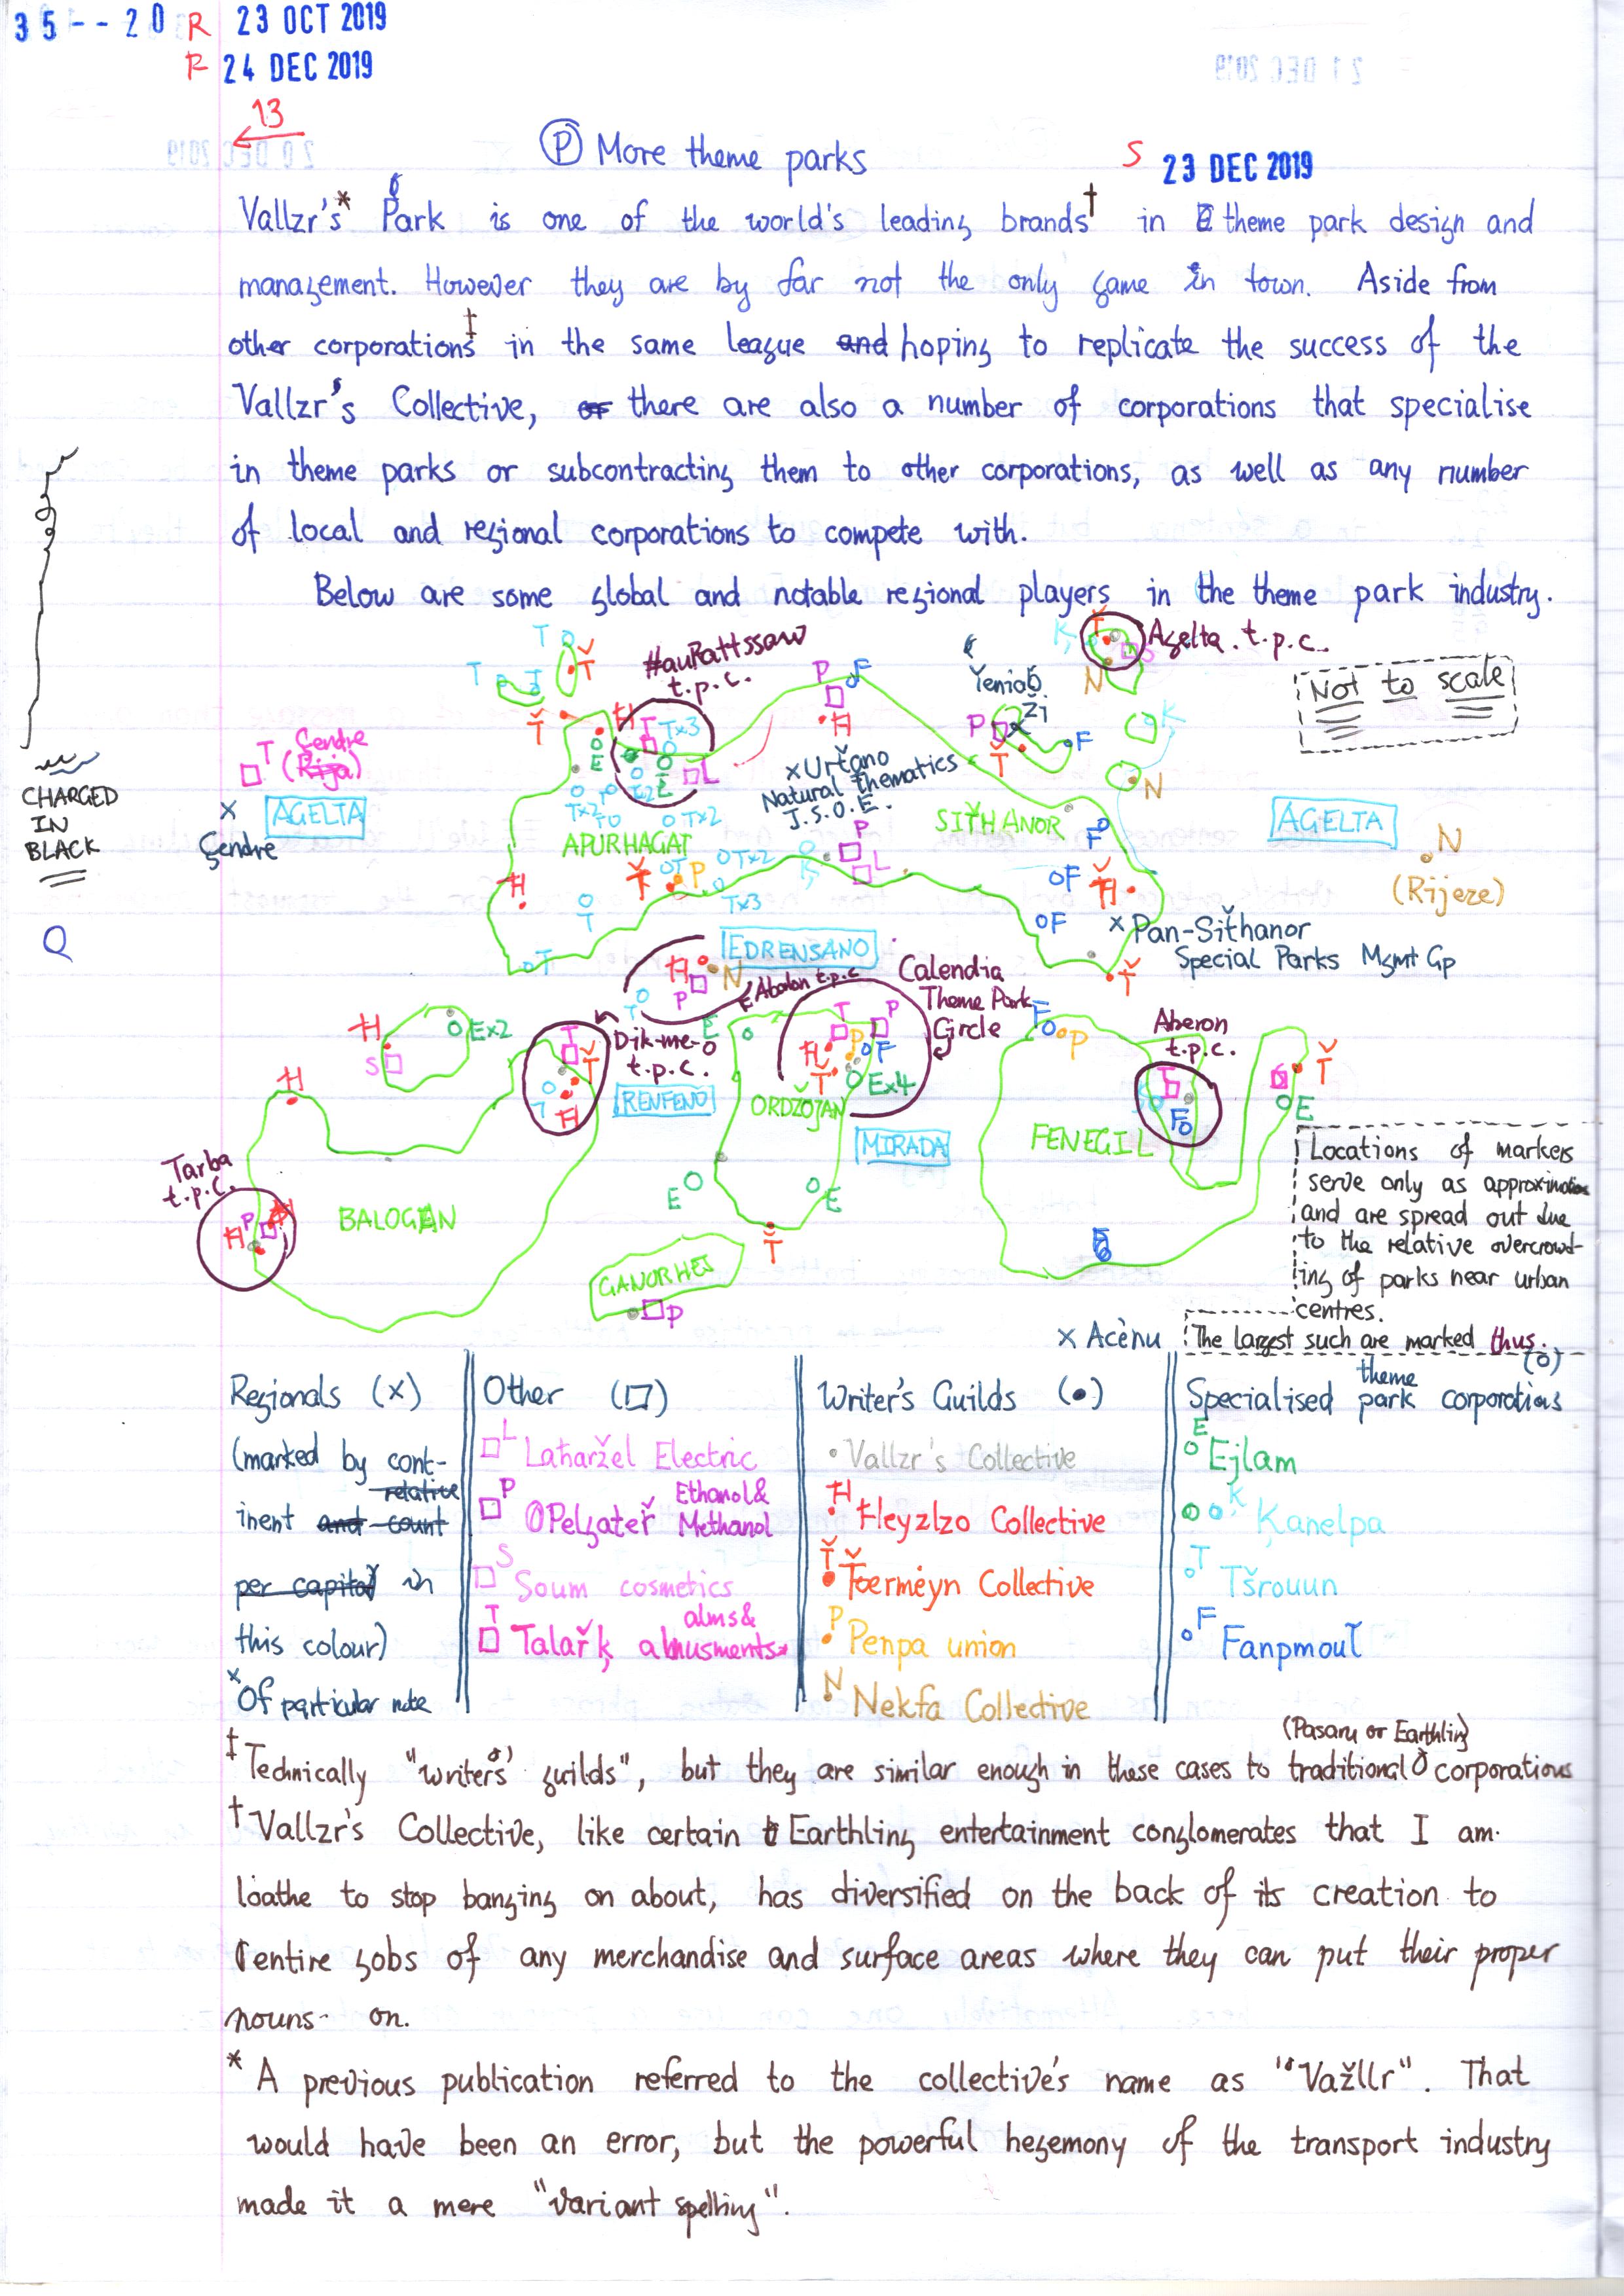 35--20 R 23 OCT 2019
R 24 DEC 2019
21 DEC 2019
13
20 DEC 2019
P More theme parks
S 23 DEC 2019
Vallzr's* Park is one of the world's leading brands† in theme park design and
management. However they are by far not the only game in town. Aside from
other corporations‡ in the same league and hoping to replicate the success of the
Vallzr's Collective, or there are also a number of corporations that specialise
in theme parks or subcontracting them to other corporations, as well as any number
of local and regional corporations to compete with.
Below are some global and notable regional players in the theme park industry.
CHARGED
IN
BLACK
Q
#auRattssaw
t.p.c.
Agelta t.p.c.
Not to scale
T Çendre
(Rija)
AGELTA
Çendre
Yeniaб
Ži
x Urťano
Natural Thematics
J.S.O.E.
APURHAGAT
SIŤHANOR
AGELTA
N
(Rijeze)
x Pan-Siťhanor
Special Parks Mgmt Gp
EDRENSANO
Abalon t.p.c
Calendia
Theme Park
Circle
Dik-me-o
t.p.c.
RENFENO
ORDŽOJAN
MIRADA
Aberon
t.p.c.
FENEGIL
Tarba
t.p.c.
BALOGAN
GANORHES
Locations of markers
serve only as approximations
and are spread out due
to the relative overcrowd-
ing of parks near urban
centres.
The largest such are marked thus.
x Acènu
Regionals (x)
(marked by cont-
relative
inent and count
per capita in
this colour)
x Of particular note
Other (□)
L Laharžel Electric
P Pelgateř Ethanol &
Methanol
S Soum cosmetics
T Talařķ alms &
amusments
Writer's Guilds (•)
Vallzr's Collective
Ħ Ħeyzlzo Collective
Ť Ťoermeyn Collective
P Penpa union
N Nekfa Collective
Specialised theme park corporations (o)
E Ejlam
K Kanelpa
T Tšrouun
F Fanpmouľ
‡Technically "writers' guilds", but they are similar enough in these cases to traditional (Pasaru or Earthling) corporations
†Vallzr's Collective, like certain Earthling entertainment conglomerates that I am
loathe to stop banging on about, has diversified on the back of its creation to
entire gobs of any merchandise and surface areas where they can put their proper
nouns on.
*A previous publication referred to the collective's name as "Važllr". That
would have been an error, but the powerful hegemony of the transport industry
made it a mere "variant spelling".